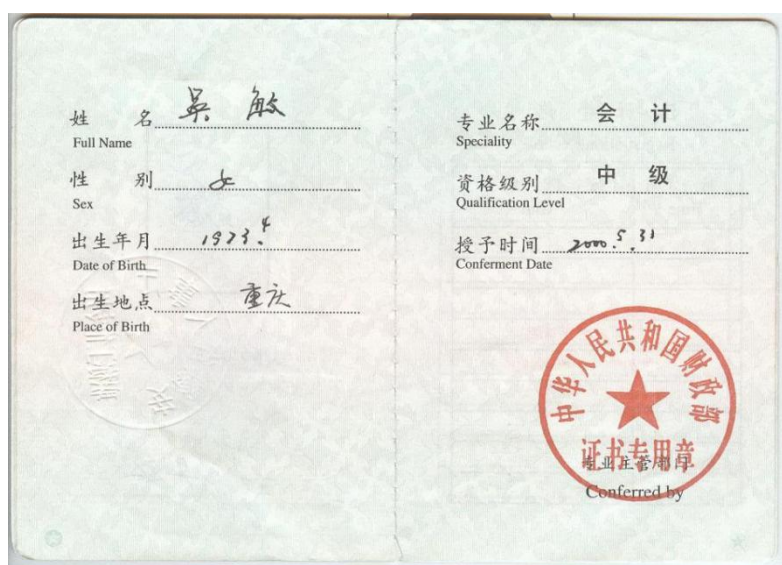 姓 名 吴 敏
Full Name
性 别 女
Sex
出生年月 1973.4
Date of Birth
出生地点 重庆
Place of Birth
专业名称 会 计
Speciality
资格级别 中 级
Qualification Level
授予时间 2000.5.31
Conferment Date
中华人民共和国财政部
证书专用章
专业主管部门
Conferred by